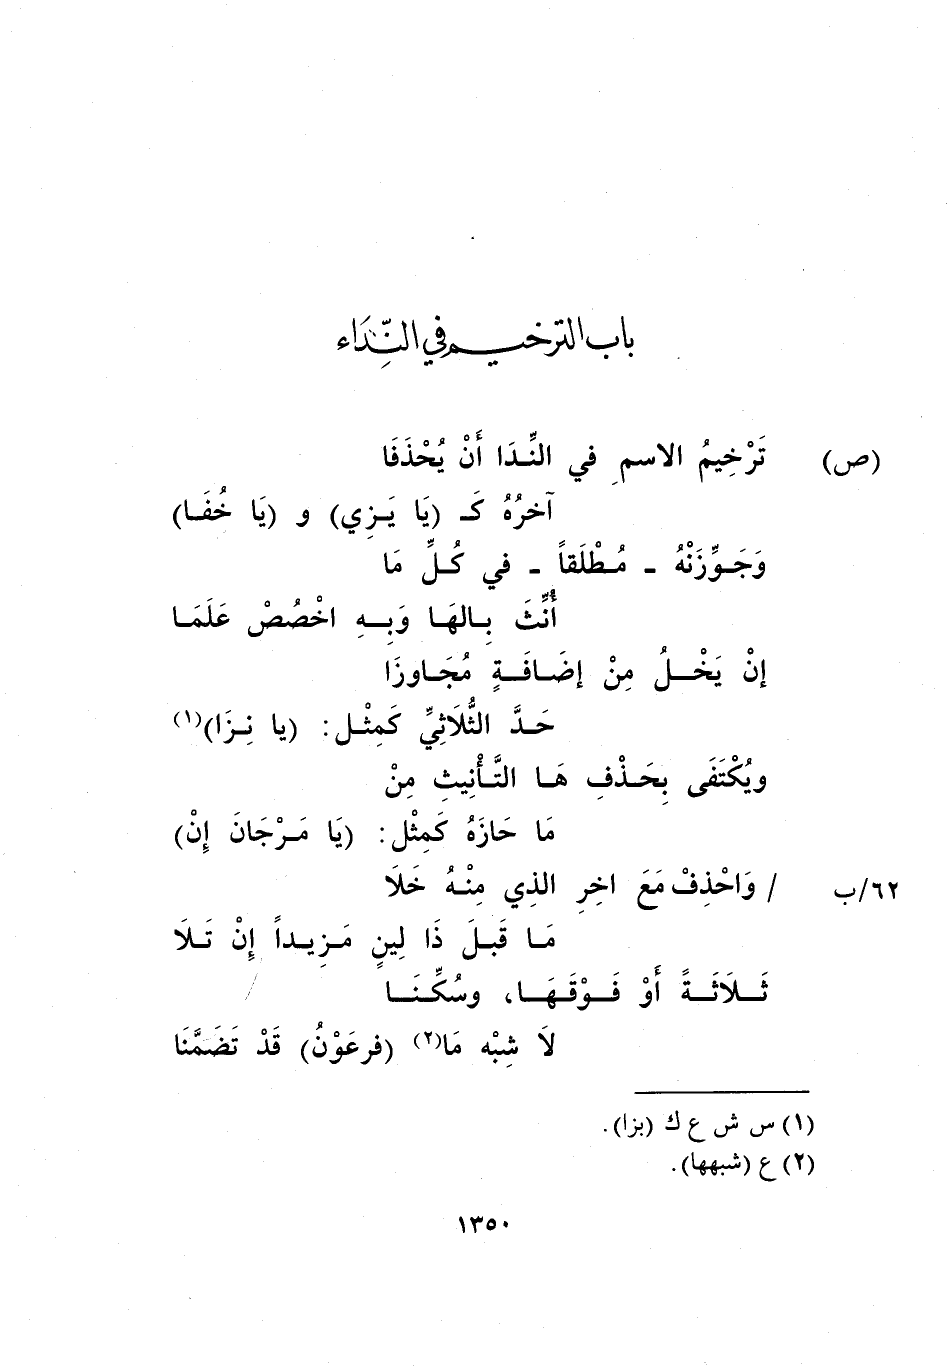 باب الترخيم في النِّدَاء
(ص) تَرْخِيمُ الاسمِ في النِّدَا أَنْ يُحْذَفَا
آخرُهُ كَـ (يَا يَـزِي) و (يَا خُفَـا)
وَجَـوِّزَنْهُ ـ مُـطْلَقاً ـ في كُـلِّ مَا
أُنِّثَ بِـالهَـا وَبِـهِ اخْصُصْ عَلَمَـا
إنْ يَخْـلُ مِنْ إضَـافَـةٍ مُجَـاوزَا
حَـدَّ الثُّلَاثِيِّ كَمِثْـل: (يا نِـزَا)(١)
ويُكْتَفَى بِحَـذْفِ هَـا التَّـأْنِيثِ مِنْ
مَا حَازَهُ كَمِثْل: (يَا مَـرْجَانَ إِنْ)
٦٢/ب / وَاحْذِفْ مَعَ اخرِ الذِي مِنْـهُ خَلَا
مَـا قَبلَ ذَا لِينٍ مَـزِيـداً إِنْ تَـلَا
ثَـلَاثَـةً أَوْ فَـوْقَـهَـا، وسُكِّـنَـا
لَا شِبْه مَا(٢) (فرعَوْنُ) قَدْ تَضَمَّنَا
(١) س ش ع ك (بزا).
(٢) ع (شبهها).
١٣٥٠